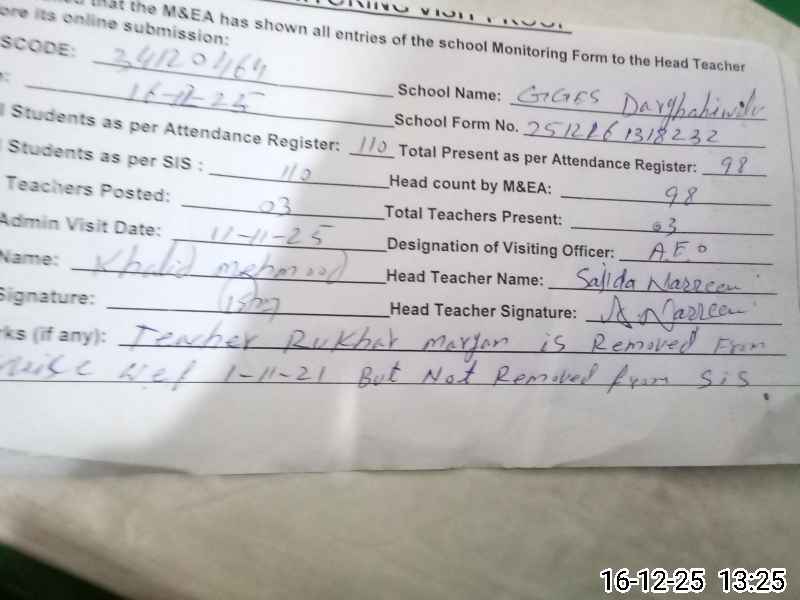 that the M&EA has shown all entries of the school Monitoring Form to the Head Teacher
ore its online submission:
SCODE: 34120464 School Name: GGES
16-12-25 School Form No. 2512161318232
Students as per Attendance Register: 110 Total Present as per Attendance Register: 98
Students as per SIS : 110 Head count by M&EA: 98
Teachers Posted: 03 Total Teachers Present: 03
Admin Visit Date: 11-11-25 Designation of Visiting Officer: A.E.O
Name: Khalid mehmood Head Teacher Name: Sajida Nazreen
Signature: Head Teacher Signature: Nazreen
rks (if any): Teacher Rukhat maryam is Removed From
wef 1-11-21 But Not Removed from SiS
16-12-25 13:25